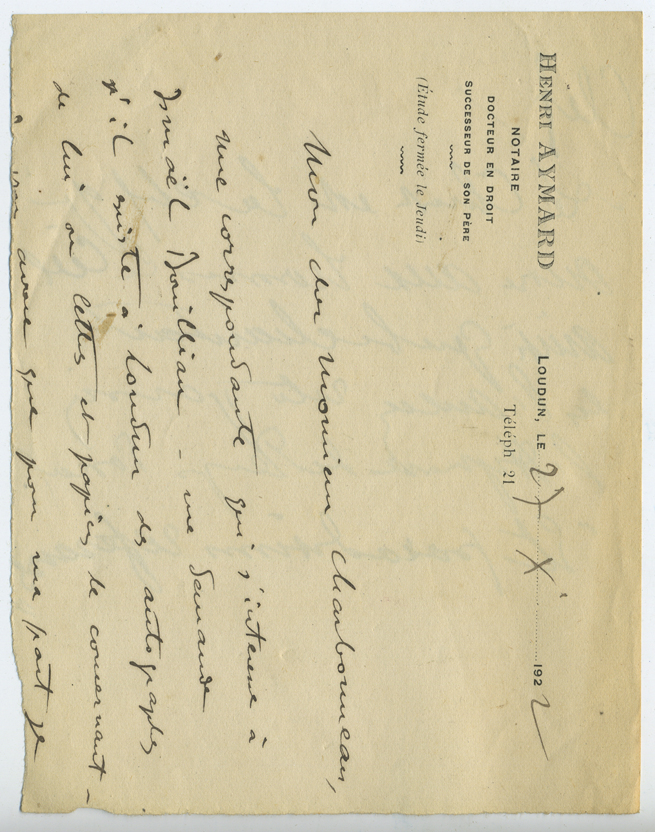 HENRI AYMARD
NOTAIRE
DOCTEUR EN DROIT
SUCCESSEUR DE SON PÈRE
(Étude fermée le Jeudi)
LOUDUN, LE 27 Xe 1922
Téléph 21
Mon cher monsieur Charbonneau,
une correspondante qui s'interesse à
Ismaël Bouillian - me demande
s'il existe à Loudun des autographes
de lui ou lettres et papiers le concernant -
avoue que pour ma part je